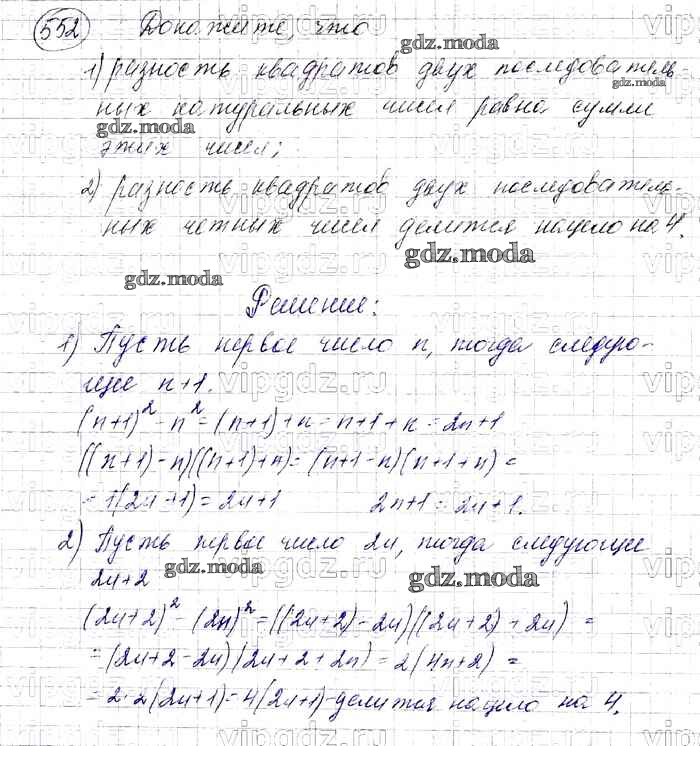 552 Докажите, что
1) разность квадратов двух последователь-
ных натуральных чисел равна сумме
этих чисел;
2) разность квадратов двух последователь-
ных четных чисел делится нацело на 4.
Решение:
1) Пусть первое число n, тогда следую-
щее n+1.
(n+1)² - n² = (n+1)+n = n+1+n = 2n+1
((n+1)-n)((n+1)+n) = (n+1-n)(n+1+n) =
= 1(2n+1) = 2n+1 2n+1 = 2n+1.
2) Пусть первое число 2n, тогда следующее
2n+2
(2n+2)² - (2n)² = ((2n+2)-2n)((2n+2)+2n) =
= (2n+2-2n)(2n+2+2n) = 2(4n+2) =
= 2·2(2n+1) = 4(2n+1) - делится нацело на 4.
gdz.moda
gdz.moda
gdz.moda
gdz.moda
gdz.moda
gdz.moda
gdz.moda
vipgdz.ru